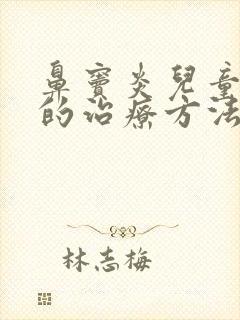 鼻竇炎兒童
的治療方法
林志梅